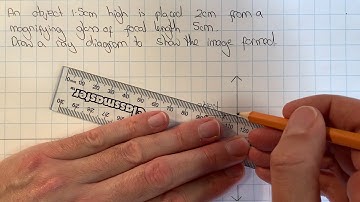 An object 1.5cm high is placed 2cm from a
magnifying glass of focal length 5cm.
Draw a ray diagram to show the image formed.
classmaster